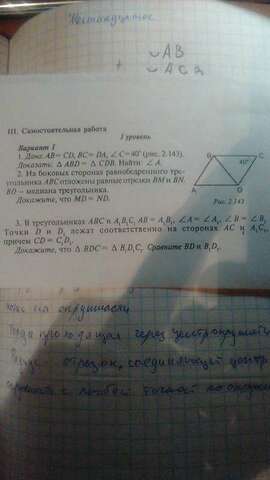 ◡AB
◡AC
III. Самостоятельная работа
I уровень
Вариант 1
1. Дано: AB = CD, BC = DA, ∠C = 40° (рис. 2.143).
Доказать: △ ABD = △ CDB. Найти: ∠ A.
2. На боковых сторонах равнобедренного тре-
угольника ABC отложены равные отрезки BM и BN.
BD – медиана треугольника.
Докажите, что MD = ND.
B
C
40°
A
D
Рис. 2.143
3. В треугольниках ABC и A₁B₁C₁ AB = A₁B₁, ∠A = ∠A₁, ∠B = ∠B₁.
Точки D и D₁ лежат соответственно на сторонах AC и A₁C₁,
причем CD = C₁D₁.
Докажите, что △ BDC = △ B₁D₁C₁. Сравните BD и B₁D₁.
на окружности
проходящая через центр окружности
отрезок, соединяющий центр
с любой точкой